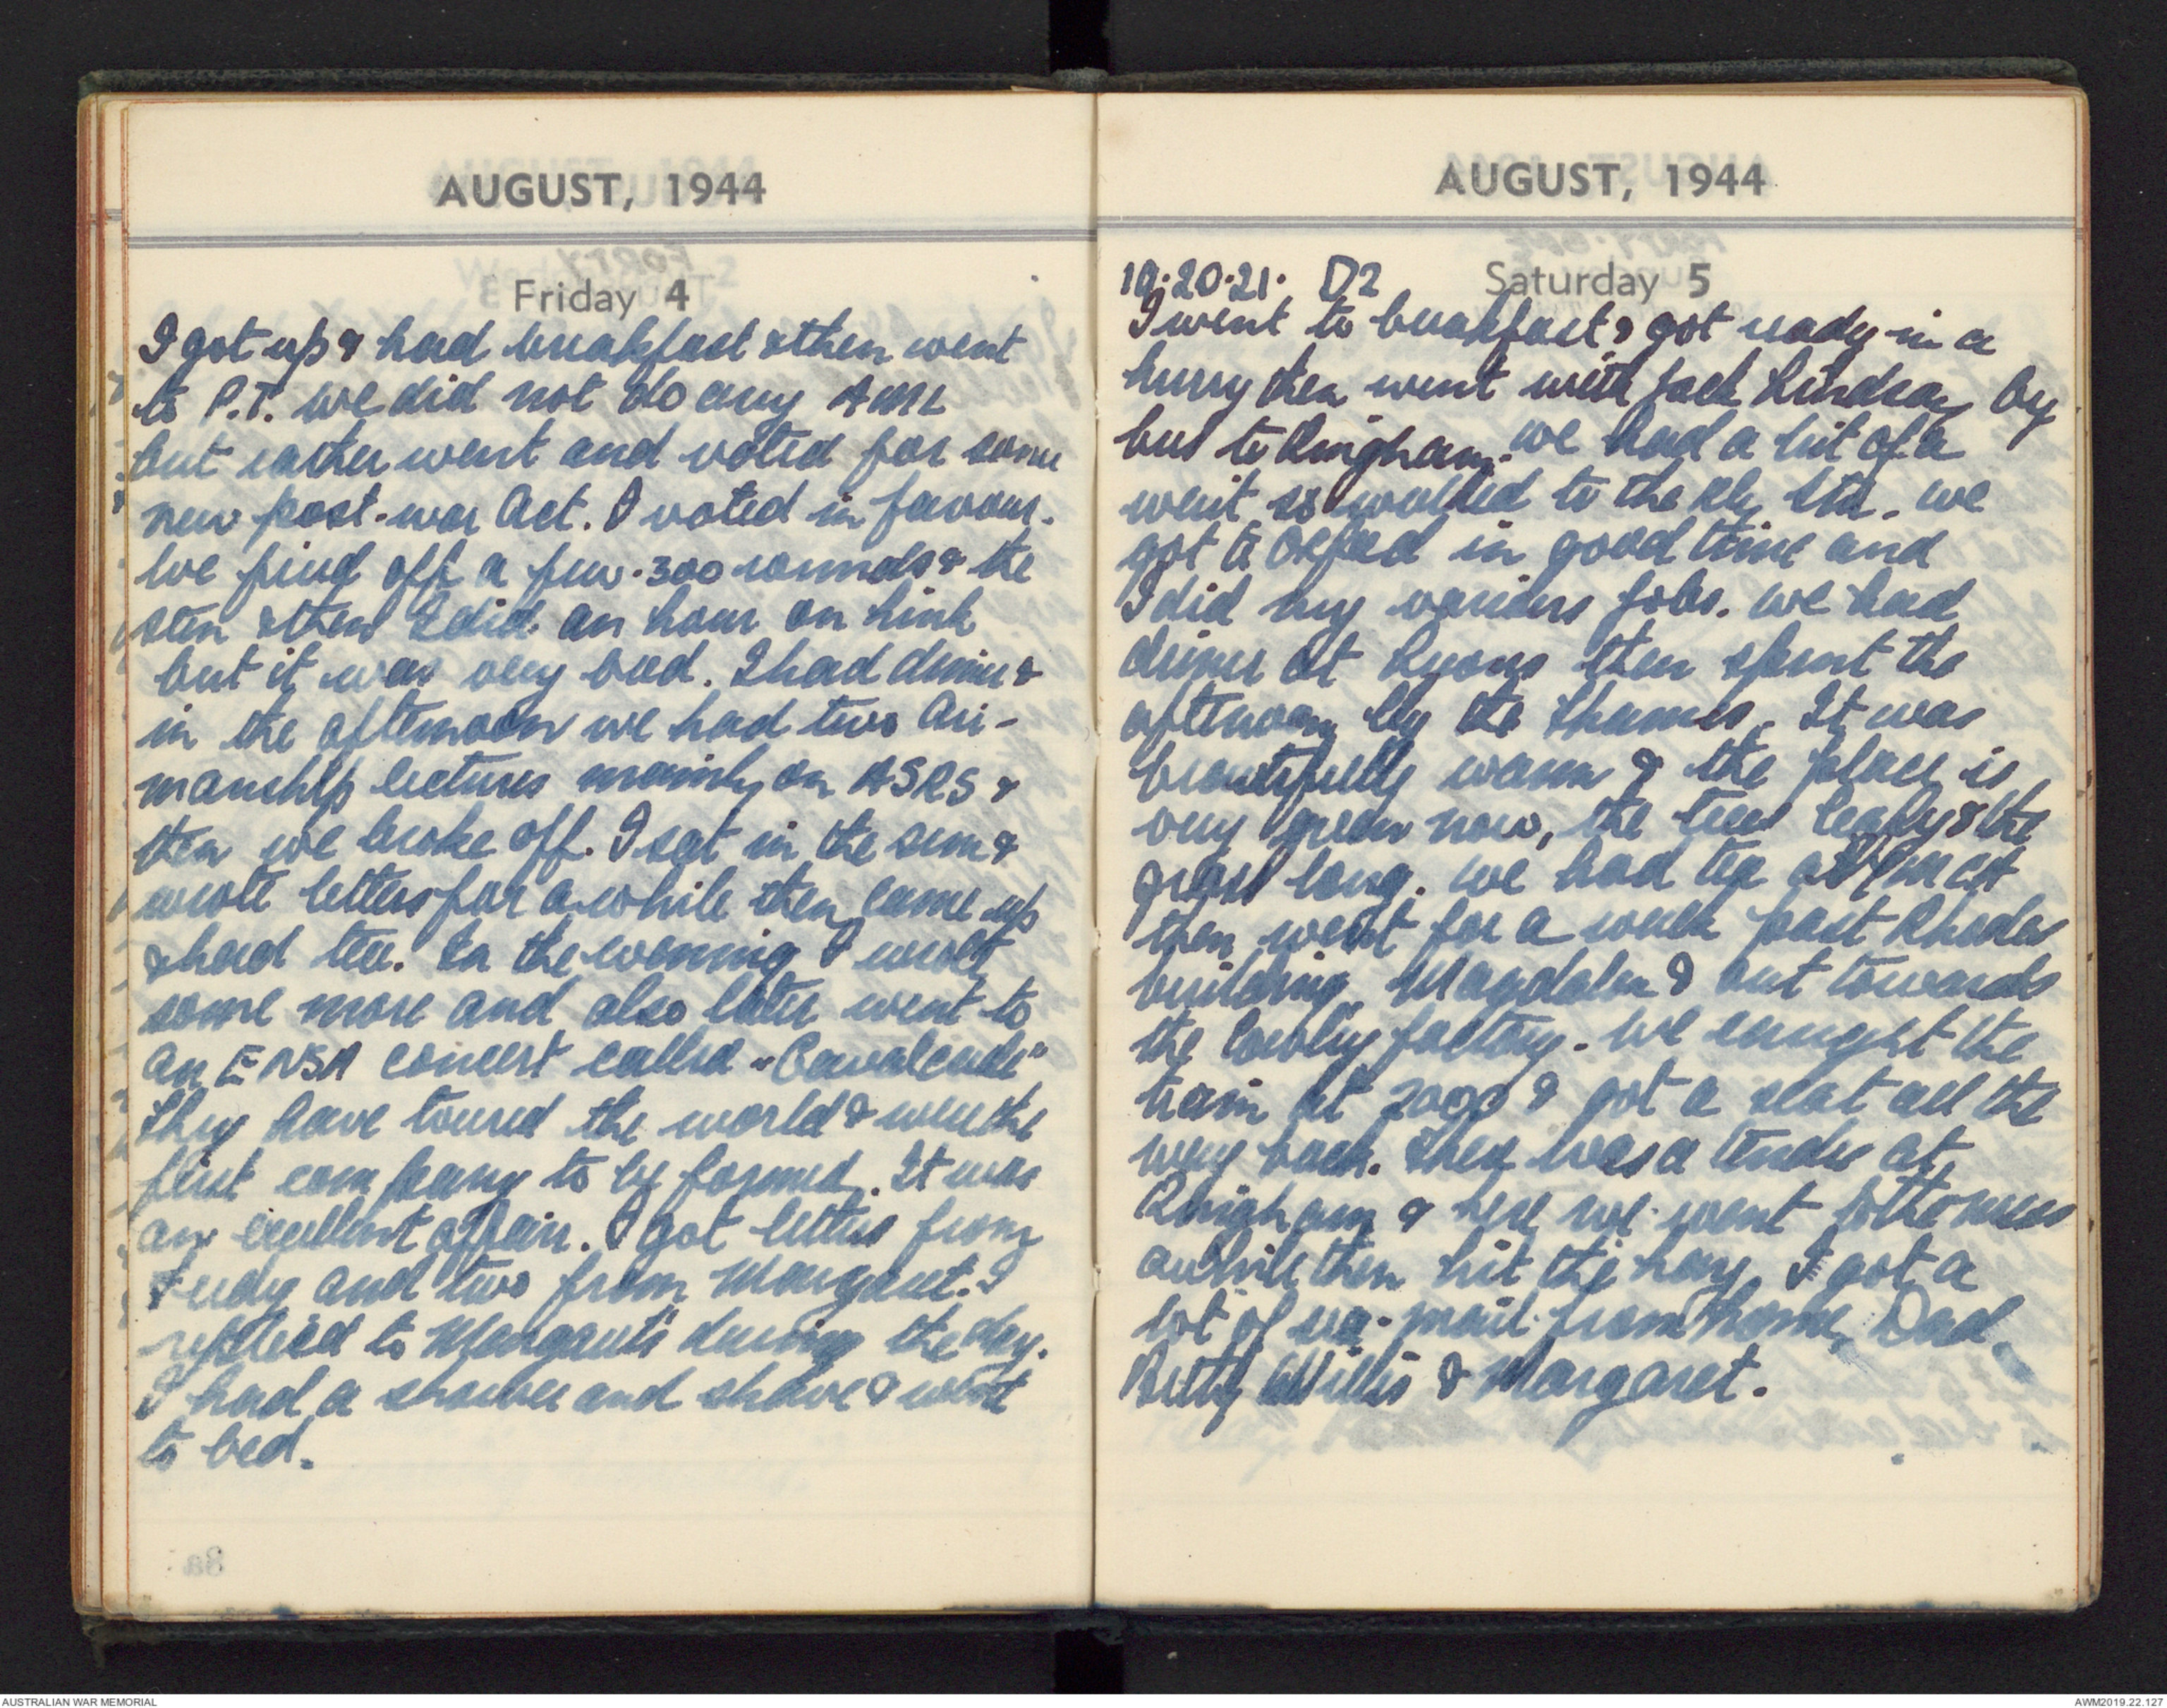 AUGUST, 1944
Friday 4
I got up & had breakfast & then went
to P.T. We did not do any AML
but rather went and voted for some
new post-war Act. I voted in favour.
We fired off a few .300 rounds & the
sten & then I did an hour on link
but it was very bad. I had dinner &
in the afternoon we had two Air-
manship lectures mainly on ASRS &
then we broke off. I sat in the sun &
wrote letters for awhile then came up
& had tea. In the evening I wrote
some more and also later went to
an ENSA concert called "Cavalcade"
they have toured the world & were the
first company to be formed. It was
an excellent affair. I got letters from
Trudy and two from Margaret. I
replied to Margaret's during the day.
I had a shower and shave & went
to bed.
AUGUST, 1944
19.20.21. D2
Saturday 5
I went to breakfast & got ready in a
hurry then went with Jack Lindsay by
bus to Bingham. We had a bit of a
wait so walked to the Rly Stn. We
got to Oxford in good time and
I did my various jobs. We had
dinner at Lyons then spent the
afternoon by the Thames. It was
beautifully warm & the place is
very green now, the trees leafy & the
grass long. We had tea at
then went for a walk past Rhodes
building, Magdalen & out towards
the Cowley factory. We caught the
train at 2000 & got a seat all the
way back. There was a tender at
& here we went to the mess
awhile then hit the hay. I got a
lot of mail from home, Dad,
Betty Willis & Margaret.
AUSTRALIAN WAR MEMORIAL
AWM2019.22.127